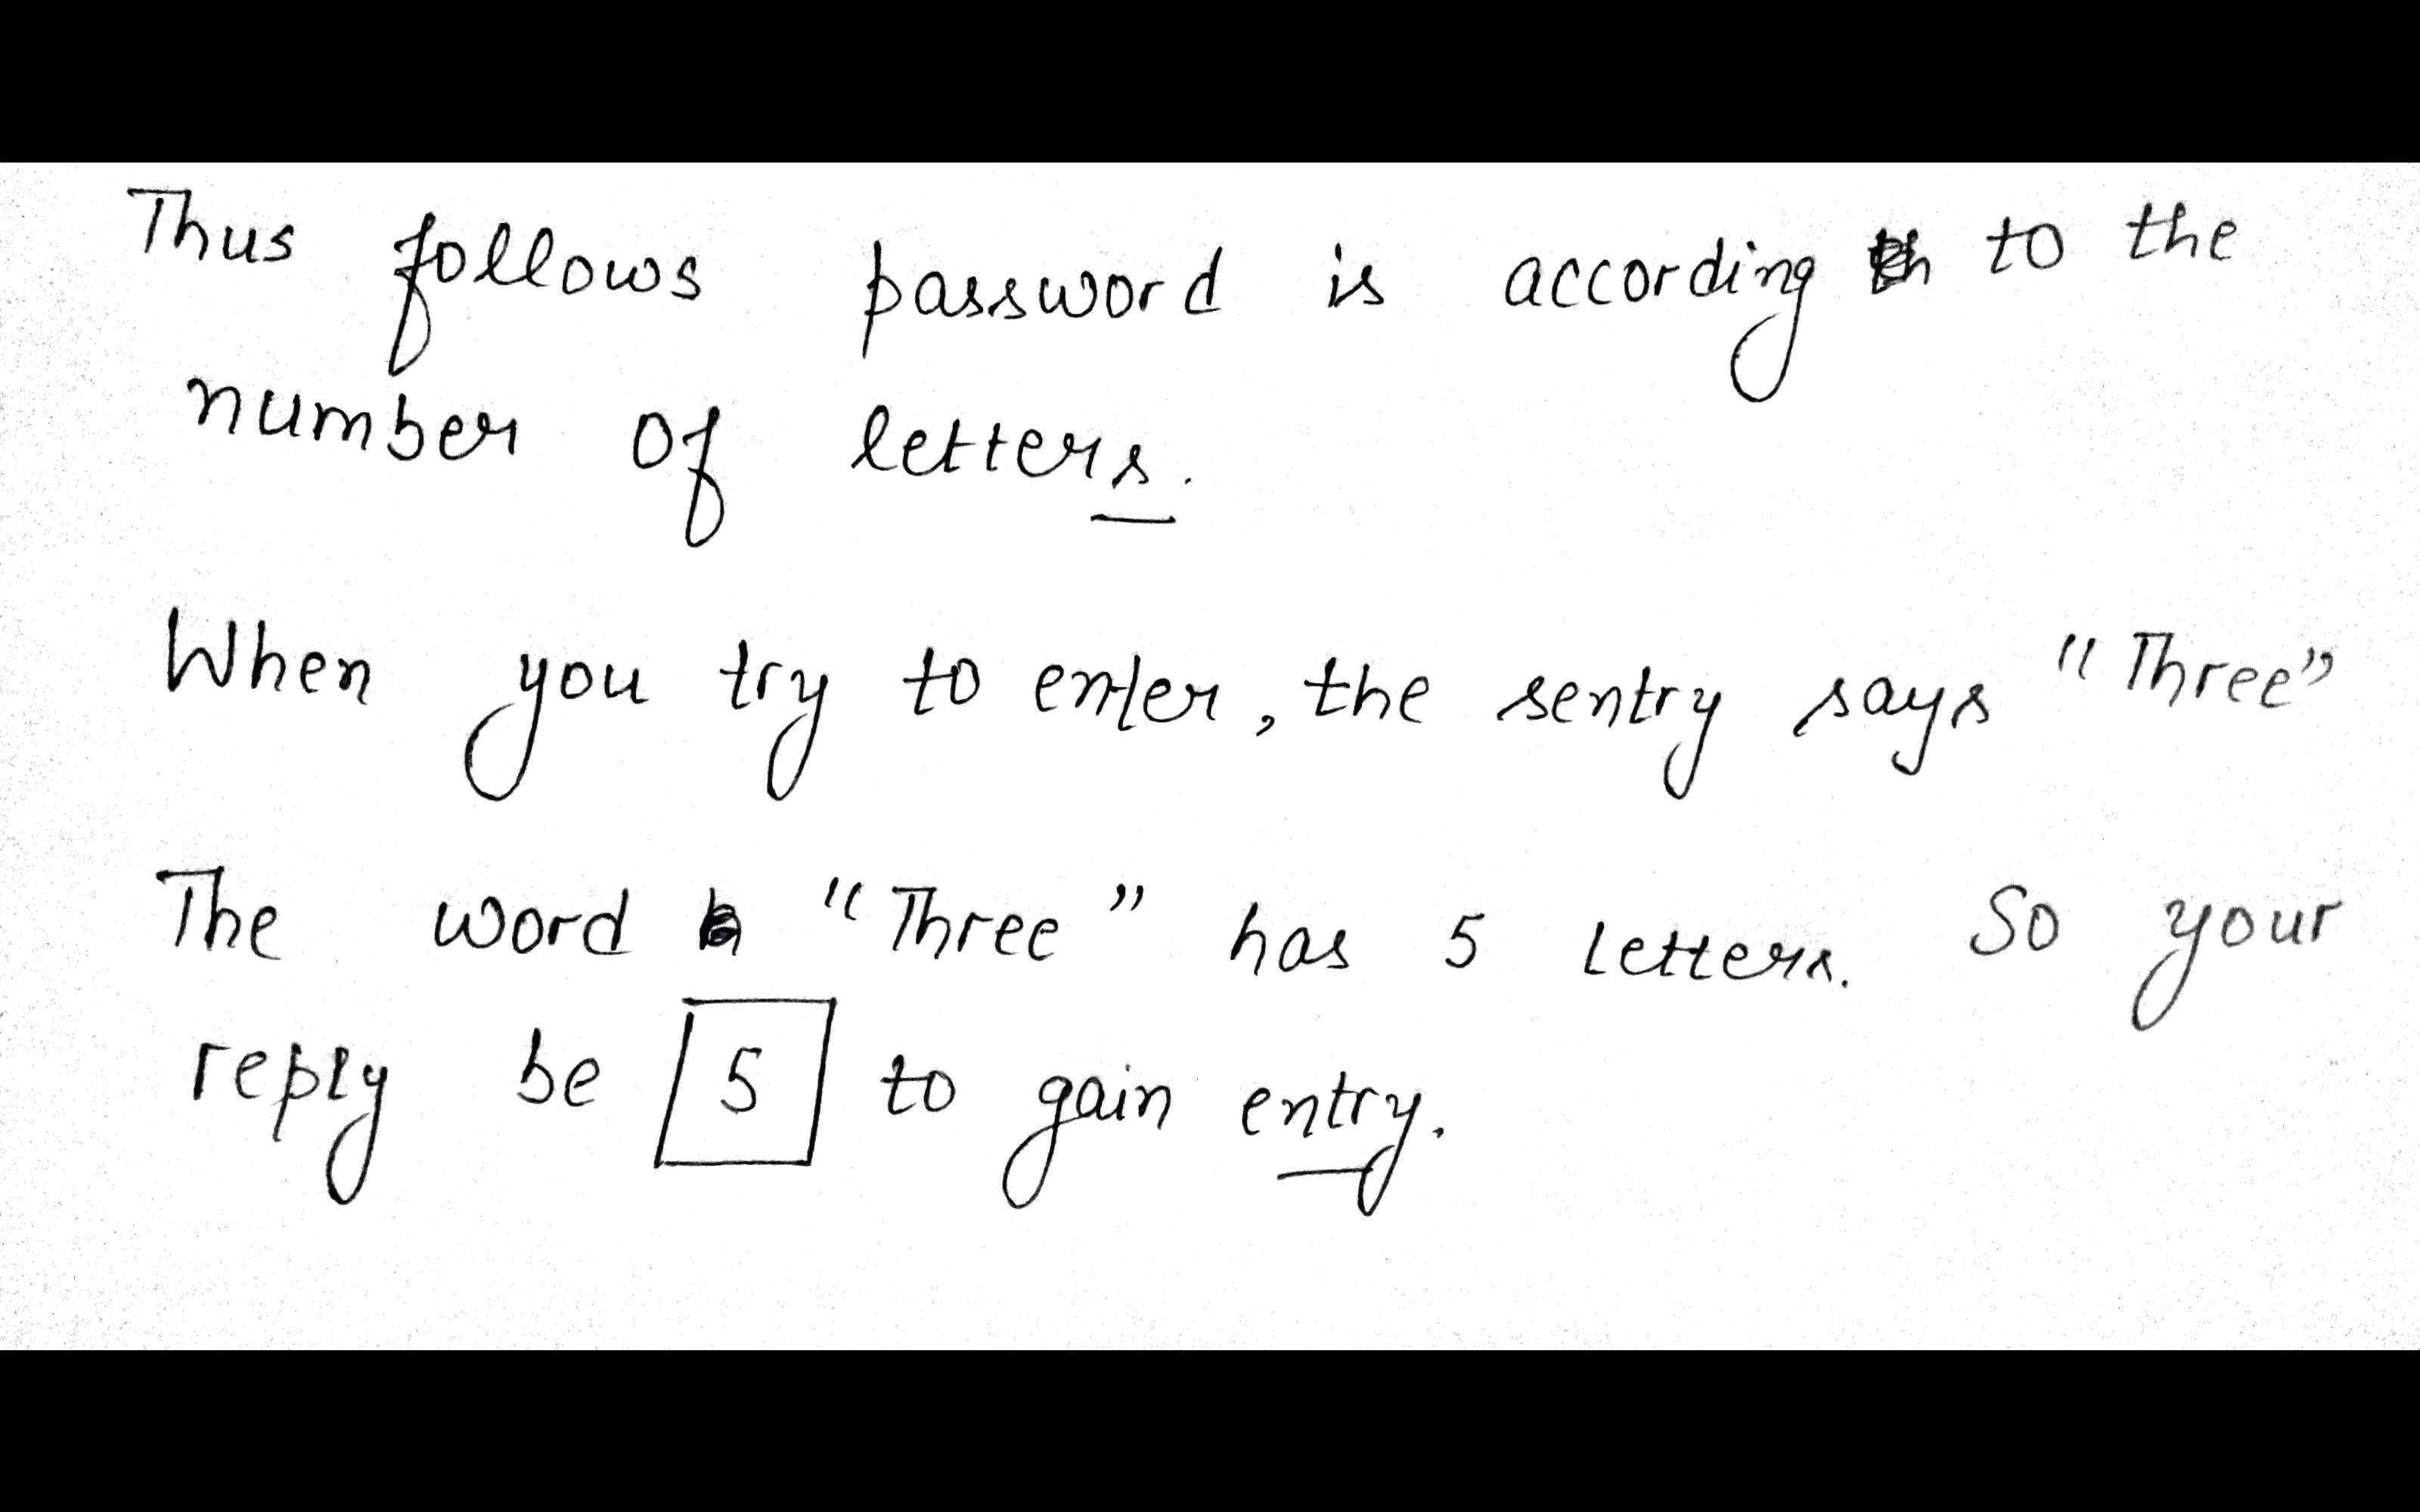 Thus follows password is according to the
number of letters.
When you try to enter, the sentry says "Three"
The word "Three" has 5 letters. So your
reply be 5 to gain entry.